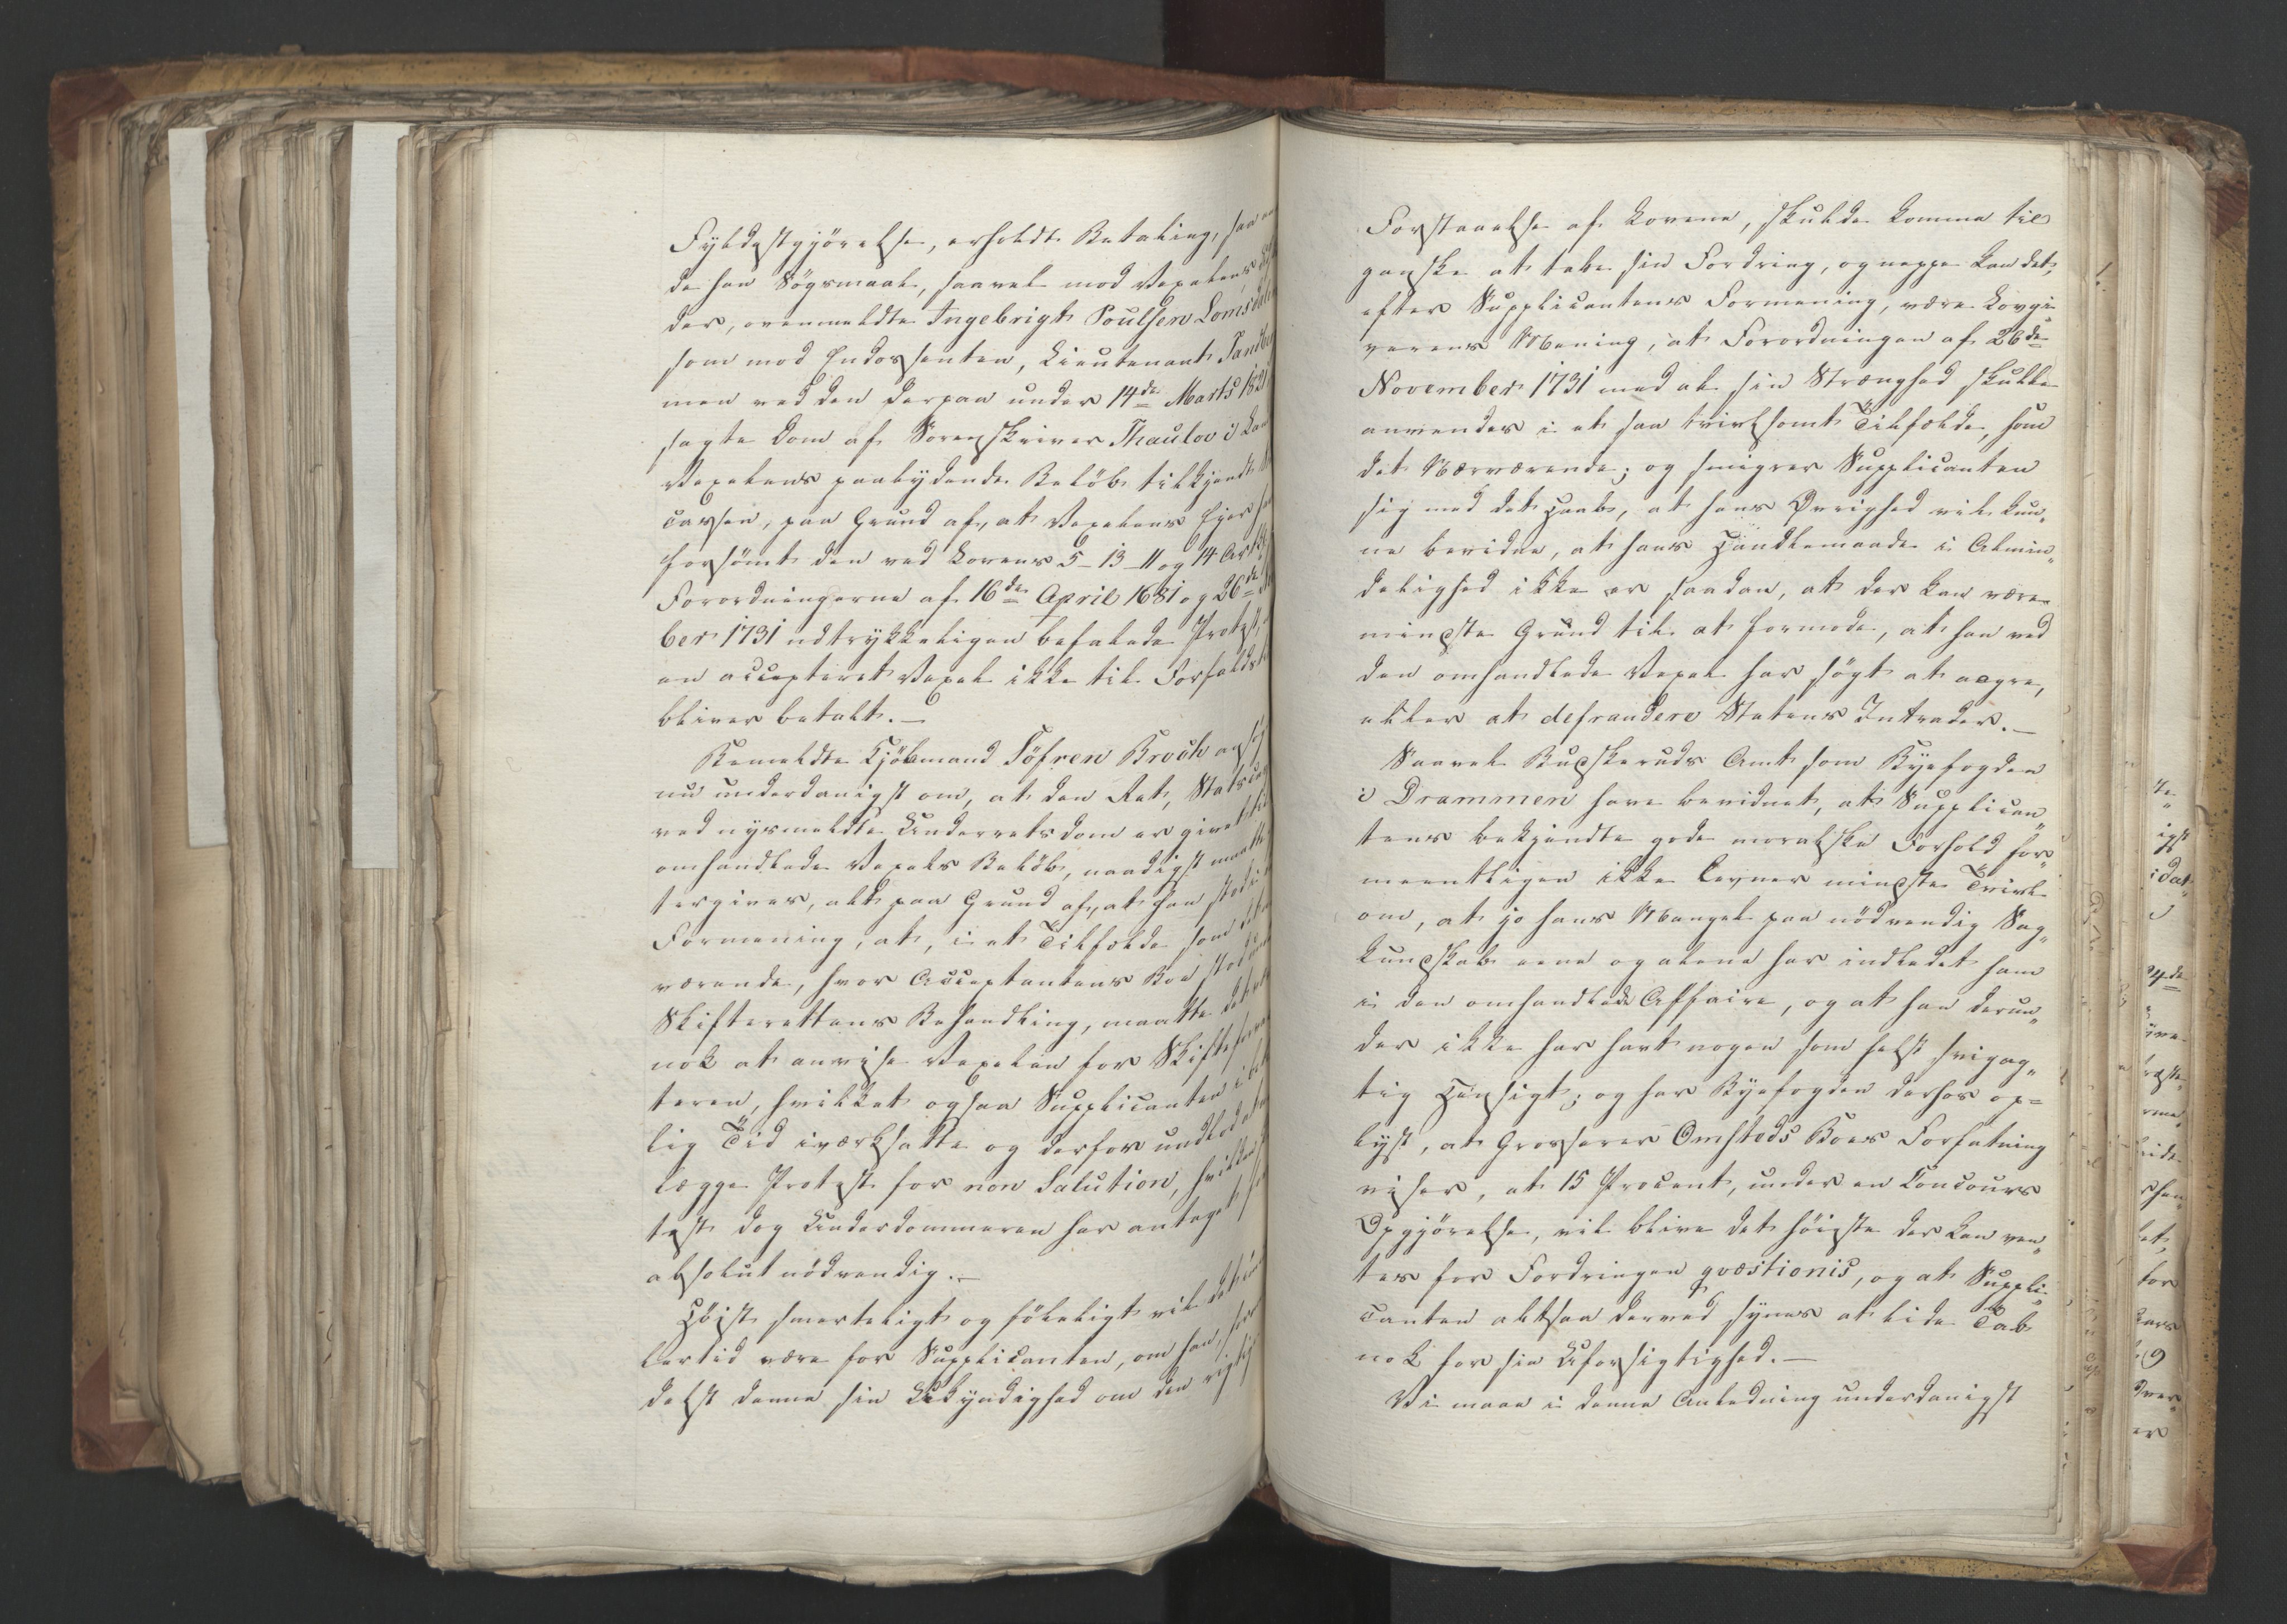 Fyldestgjörelse, erholdt Betaling, saa
de han Sögsmaal, saavel mod Vexelens
der, ovenmeldte Ingebrigt Poulsen Lomsdalen
som mod Endossenten, Lieutenant Tandberg
men ved den derpaa under 14de Marts 1821
sagte Dom af Sorenskriver Thaulov i
Vexelens paalydende Belöb tilkjendt
Cassen, paa Grund af, at Vexelens Eier
forsömt den ved Lovens 5-13-11 og 14 Art:
Forordningerne af 16de April 1681 og 26de
ber 1731 udtrykkeligen befalede Protest,
en accepteret Vexel ikke til Forfalds
bliver betalt.—
Bemeldte Kjöbmand Söfren Broch
nu underdanigst om, at den Ret, Stats
ved nysmeldte Underrets dom er givet til
omhandlede Vexels Belöb, naadigst maatte
tergives, alt paa Grund af, at han stod i
Formening, at, i et Tilfælde som det
værende, hvor Acceptantens Boe stod under
Skifterettens Behandling, maatte det
nok at anvise Vexelen for Skifteforval
teren, hvilket ogsaa Supplicanten i
lig Tid iværksatte og derfor undlod at
lægge Protest for non Salution, hvilken
test dog Underdommeren har antaget
absolut nödvendig.—
Höist smerteligt og föleligt vil det
lertid være for Supplicanten, om han,
delst denne sin Ukyndighed om den rigtige
Forstaaelse af Lovene, skulde komme til
ganske at tabe sin Fordring, og neppe kan det,
efter Supplicantens Formening, være Lovgi„
verens Mening, at Forordningen af 26de
November 1731 med al sin Strænghed skulde
anvendes i et saa tvivlsomt Tilfælde, som
det Nærværende; og smigrer Supplicanten
sig med det Haab, at hans Øvrighed vil kun„
ne bevidne, at hans Handlemaade i Almin„
delighed ikke er saadan, at der kan være
mindste Grund til at formode, at han ved
den omhandlede Vexel har sögt at
eller at defraudere Statens Intrader.—
Saavel Budskeruds Amt som Byefogden
i Drammen have bevidnet, at Supplican„
tens bekjendte gode moralske Forhold for„
meentligen ikke levner mindste Tvivl
om, at jo hans Mangel paa nödvendig Sag„
kundskab ene og alene har indledet ham
i den omhandlede Affaire, og at han derun„
der ikke har havt nogen som helst svigag„
tig Hensigt; og har Byefogden derhos op=
lyst, at Grosserer Omsteds Boes Forfatning
viser, at 15 Procent, under en Concours
Opgjörelse, vil blive det höieste der kan ven„
tes for Fordringen qvæstionis, og at Suppli„
canten altsaa derved synes at lide Tab
nok for sin Uforsigtighed.—
Vi maae i denne Anledning underdanigst